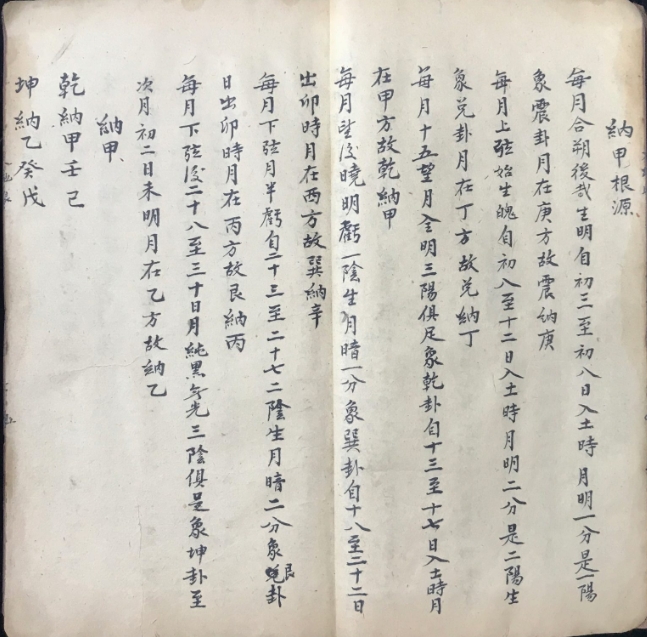 納甲根源
每月合朔後哉生明自初三至初八日入土時月明一分是一陽
象震卦月在庚方故震納庚
每月上弦始生魄自初八至十二日入土時月明二分是二陽生
象兌卦月在丁方故兌納丁
每月十五望月全明三陽俱足象乾卦自十三至十七日入土時月
在甲方故乾納甲
每月望後曉明虧一陰生月暗一分象巽卦自十八至二十二日
出卯時月在西方故巽納辛
每月下弦月半虧自二十三至二十七二陰生月暗二分象兌艮卦
日出卯時月在丙方故艮納丙
每月下弦後二十八至三十日月純黑無光三陰俱是象坤卦至
次月初二日未明月在乙方故納乙
納甲
乾納甲壬己
坤納乙癸戊